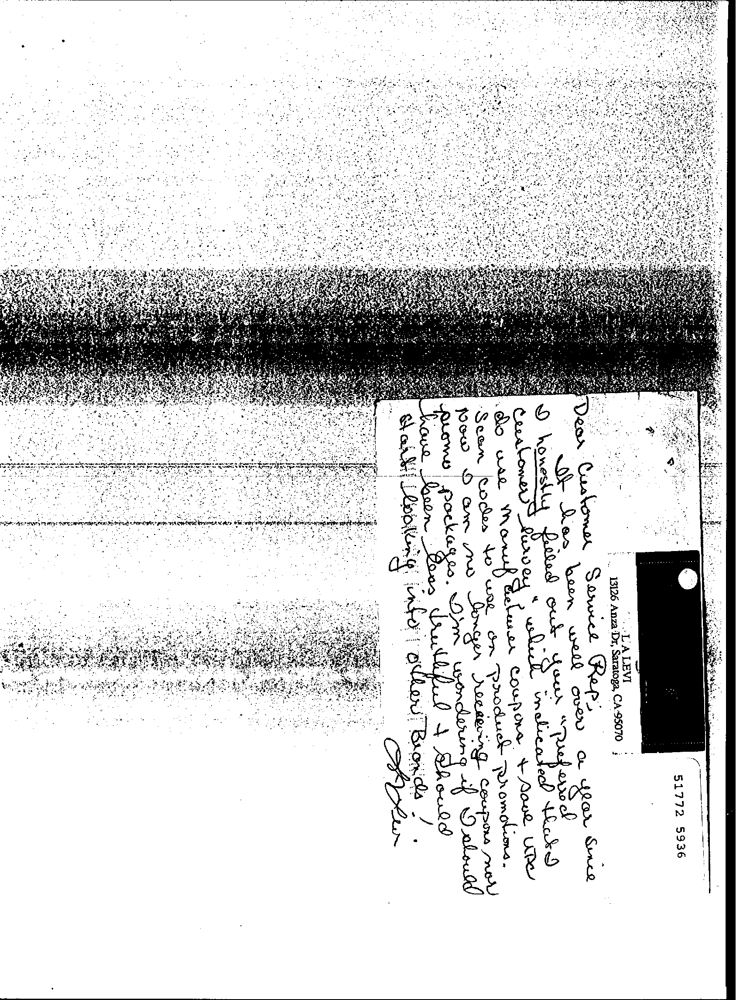 51772 5936
L A LEVI
13126 Anza Dr. Saratoga, CA 95070
Dear Customer Service Rep,
It has been well over a year since
I honestly filled out your "preferred
customer survey" which indicated that I
do use manufacturer coupons + save UPC
scan codes to use on product promotions.
Now I am no longer receiving coupons nor
promo packages. I'm wondering if I should
have been less truthful + should
start looking into other Brands!